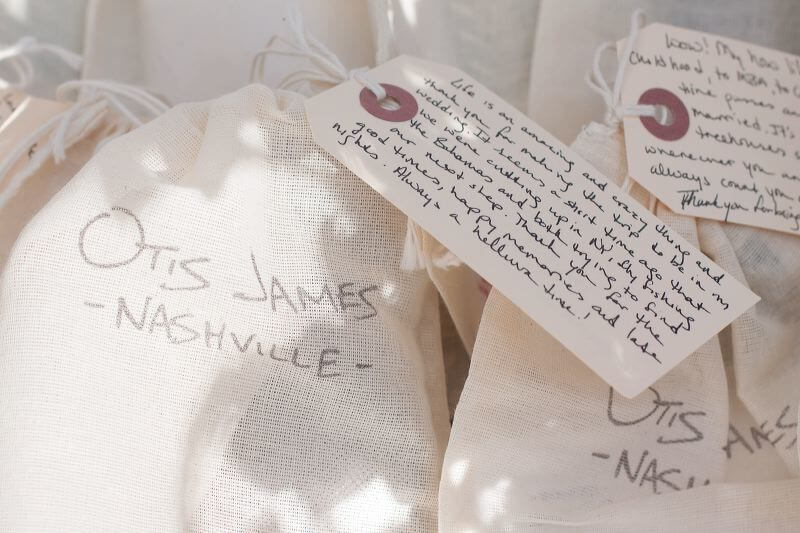 OTIS JAMES
-NASHVILLE-
Life is an amazing and crazy thing and
thank you for making the trip to be in my
wedding. It seems a short time ago that
we were cutting up in NY, fly fishing
the Bahamas and both trying to find
our next step. Thank you for the
good times, happy memories and late
nights. Always a helluva time!
Wow! My how li
Childhood, to MBA, to
time passes
married. It's
treehouses
whenever you
always count you
Thank you for being
OTIS JAMES
-NASH